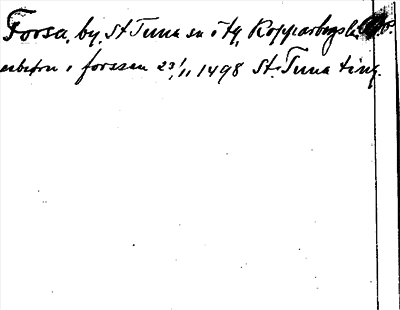 Forsa, by, St Tuna sn o tg, Kopparbergs l.
i forssen 23/11 1498 St. Tuna ting.